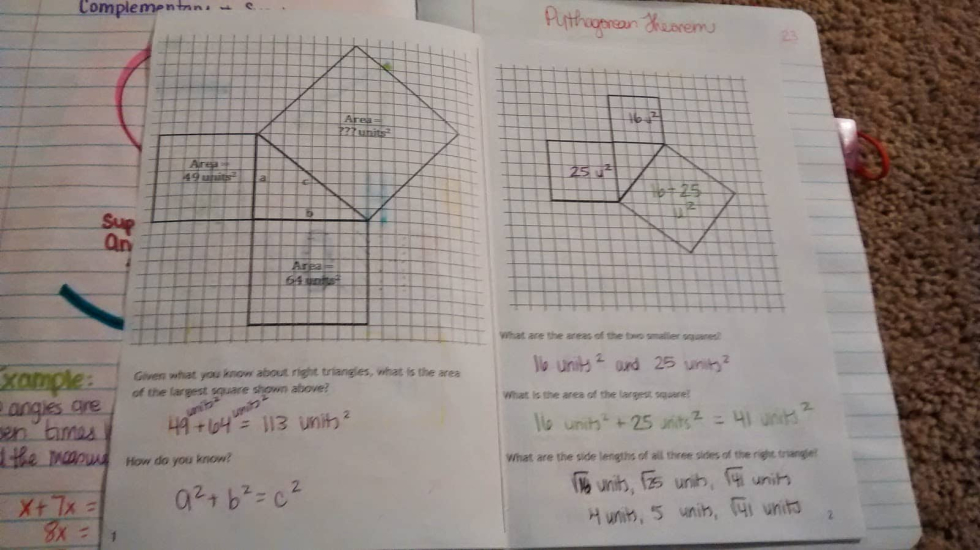 Complementary
Pythagorean Theorem
23
Area =
??? units²
Area =
49 units²
a
c
b
Area =
64 units²
Sup
An
xample:
angles are
en times
the measu
x + 7x =
8x =
Given what you know about right triangles, what is the area
of the largest square shown above?
units² units²
49 + 64 = 113 units²
How do you know?
a² + b² = c²
1
16 u²
25 u²
16+25
u²
What are the areas of the two smaller squares?
16 units² and 25 units²
What is the area of the largest square?
16 units² + 25 units² = 41 units²
What are the side lengths of all three sides of the right triangle?
√16 units, √25 units, √41 units
4 units, 5 units, √41 units
2